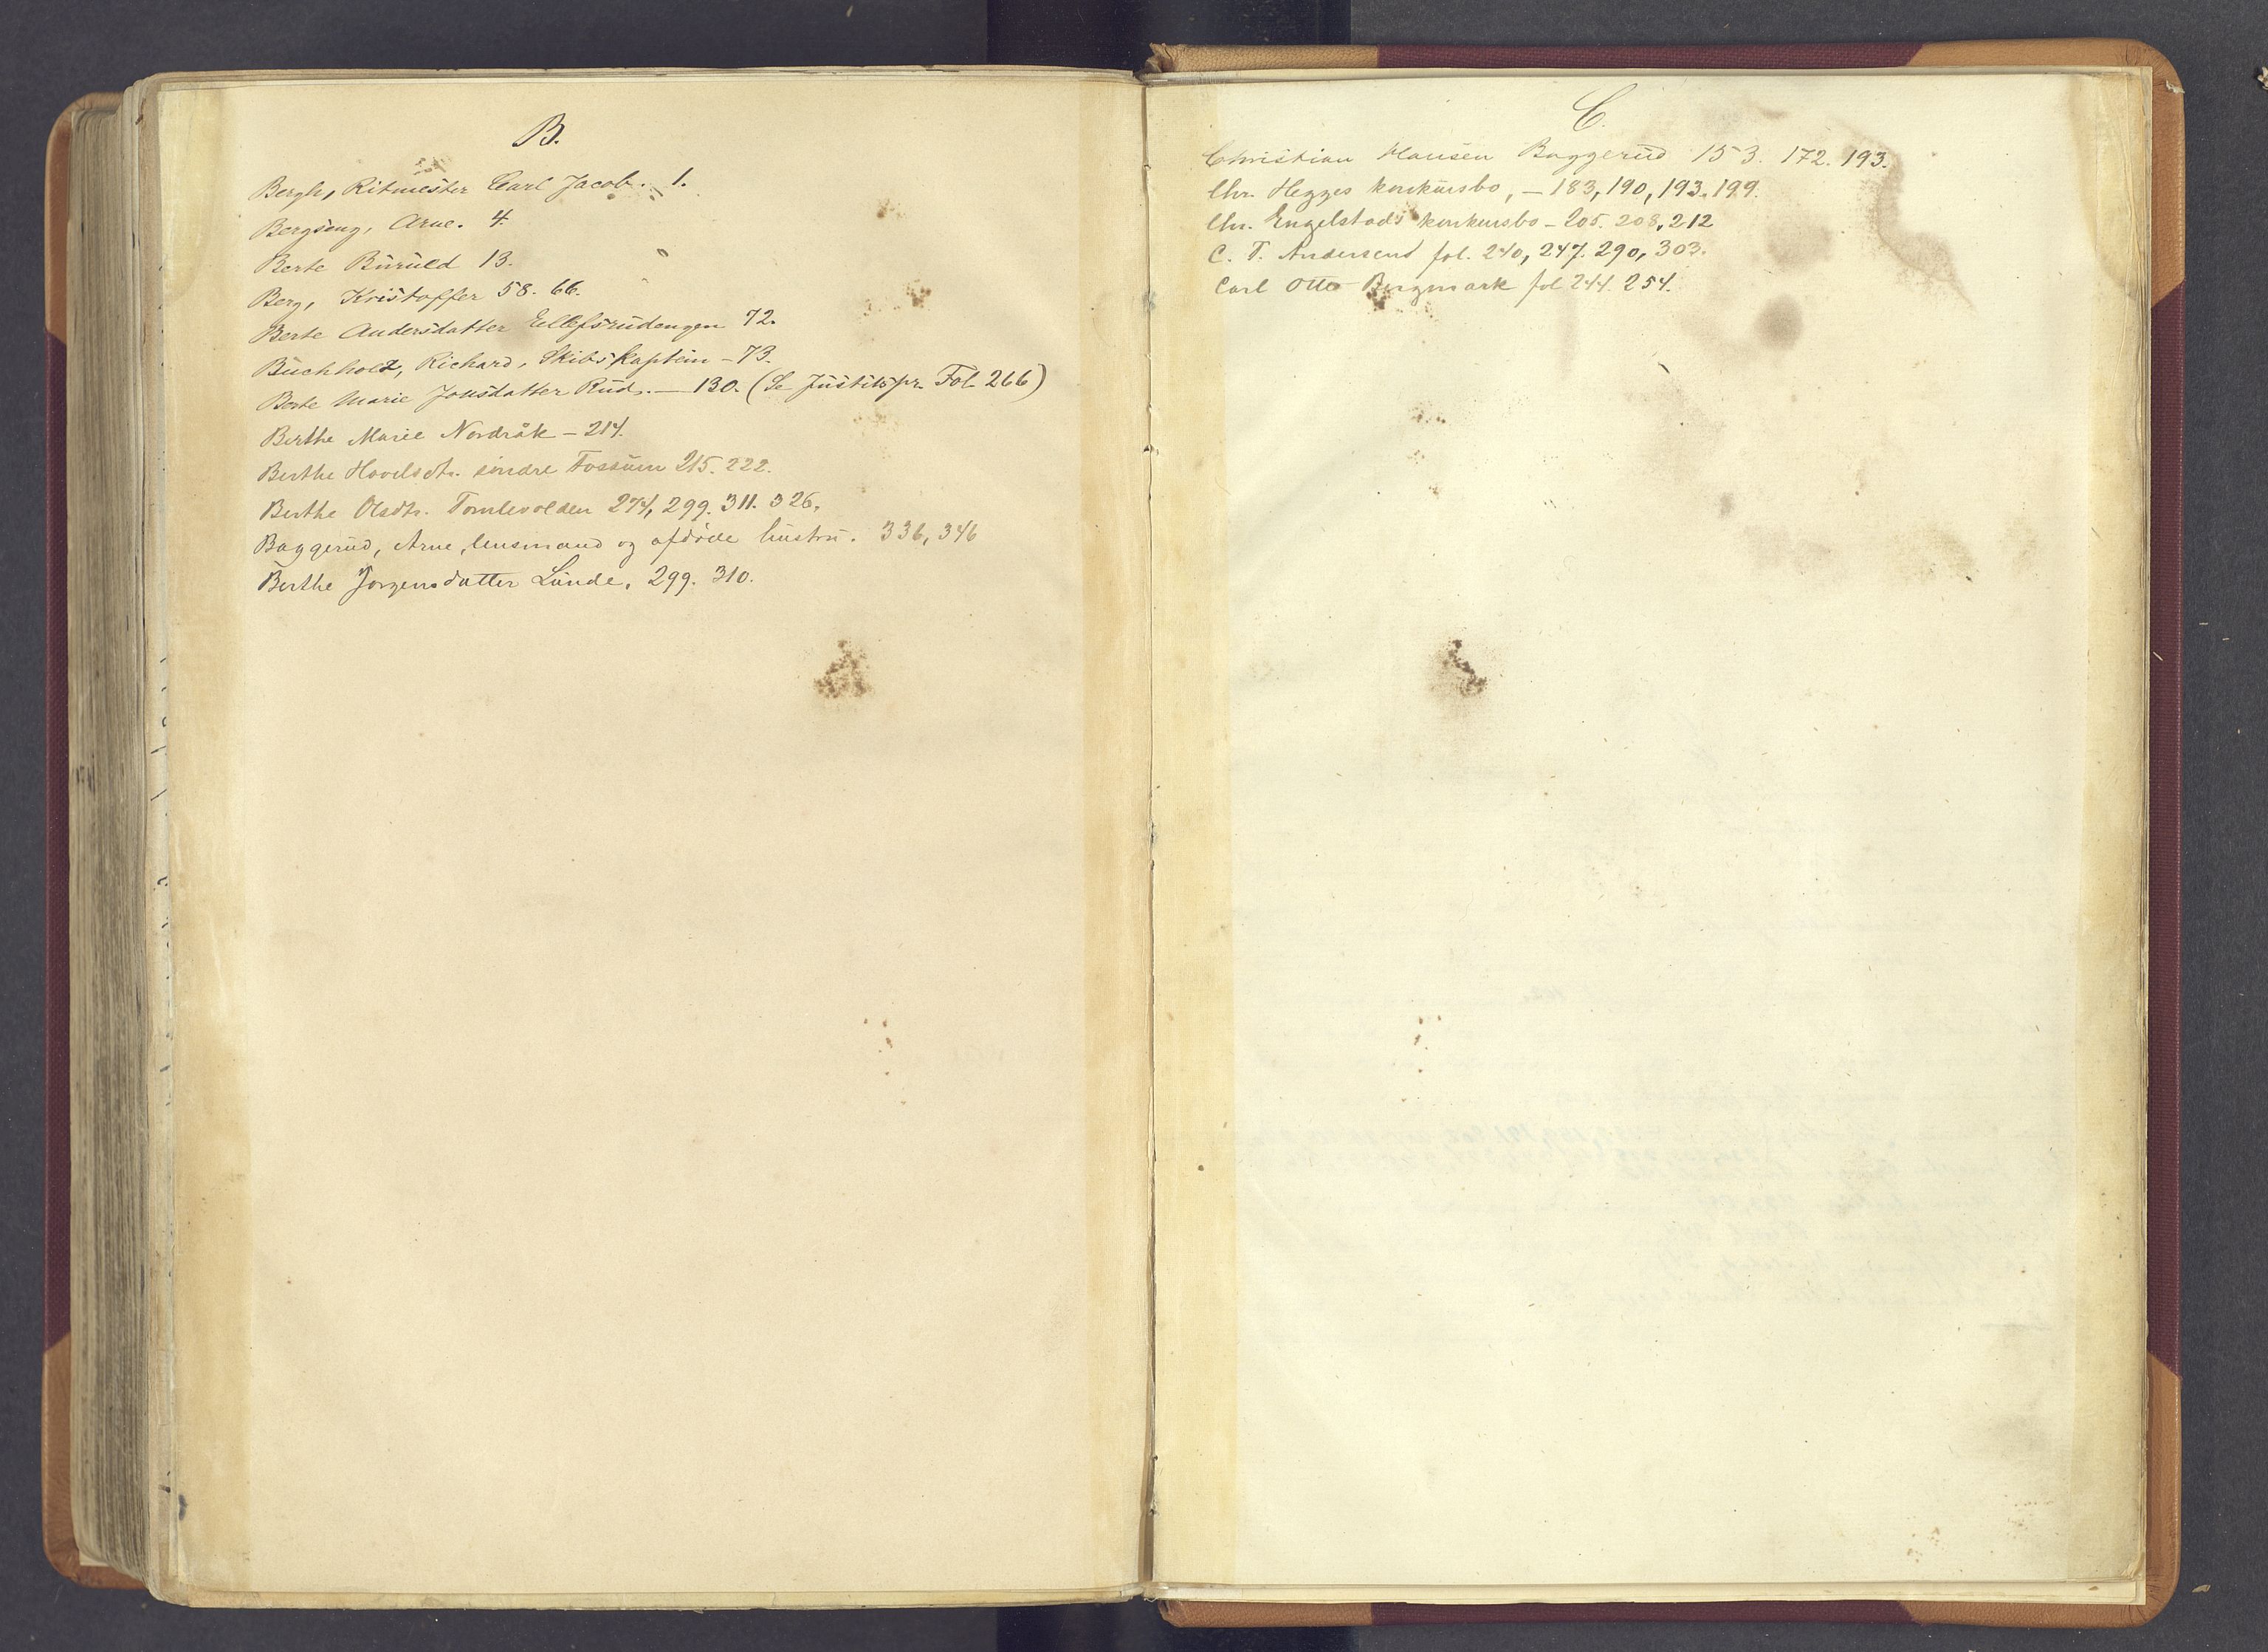 B.
Bergh, Ritmester Carl Jacob. 1.
Bergseng, Arne. 4.
Berte Buruld 13.
Berg, Kristoffer 58. 66.
Berte Andersdatter Ellefsrudengen 72.
Buchholz, Richard, Skibskaptein – 73.
Berte Marie Jonsdatter Rud. — 130. (Se Justitspr. Fol. 266)
Berthe Marie Nordråk – 214.
Berthe Hovelsdtr. søndre Fossum 215. 222.
Berthe Olsdtr. Tomlevolden 274, 299. 311. 326.
Baggerud, Arne, lensmand og afdöde hustru. 336, 346
Berthe Jörgensdatter Lunde. 299. 310.
C.
Christian Hansen Baggerud 153. 172. 193.
Chr. Hegges konkursbo, – 183, 190, 193. 199.
Chr. Engelstads konkursbo – 205. 208, 212
C. T. Andersens fol. 240, 247. 290, 303.
Carl Otto Bergmark fol 244. 254.